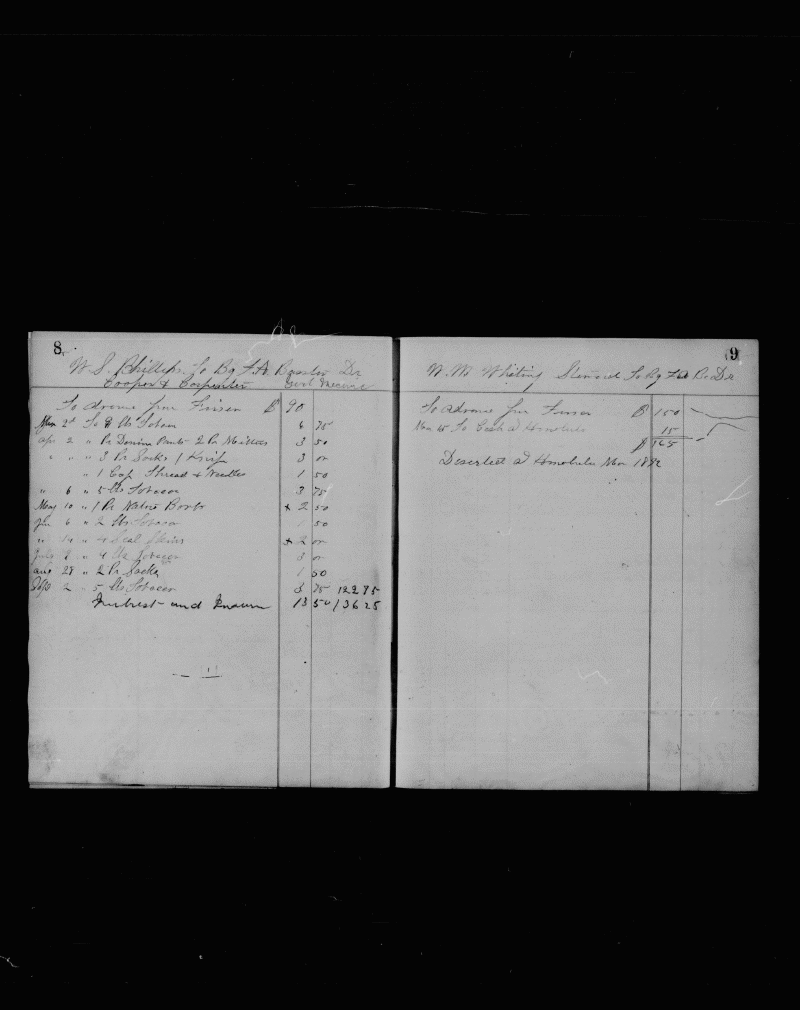 8
W. S. Phillips To Bq F. A. Barstow Dr
Cooper & Carpenter
To Advance from Finsen $ 90
Mar 2d To 9 lbs Tobacco 6 75
Apr 2 " Pr Denim Pants 2 Pr Mittens 3 50
" " " 3 Pr Socks 1 Knife 3 00
" 1 Cap Thread & Needles 1 50
" 6 " 5 lbs Tobacco 3 75
May 10 " 1 Pr Native Boots + 2 50
Jun 6 " 2 lbs Tobacco 1 50
" 14 " 4 Seal Skins + 2 00
July 8 " 4 lbs Tobacco 3 00
Aug 28 " 2 Pr Socks 1 50
Sept 2 " 5 lbs Tobacco 3 75 122 75
Intrest and Insurn 13 50 136 25
9
W. M. Whiting Steward To Bq F A B Dr
To Advance from Finsen $ 150
Mar 15 To Cash at Honolulu 15
$ 165
Deserted at Honolulu Mar 1892